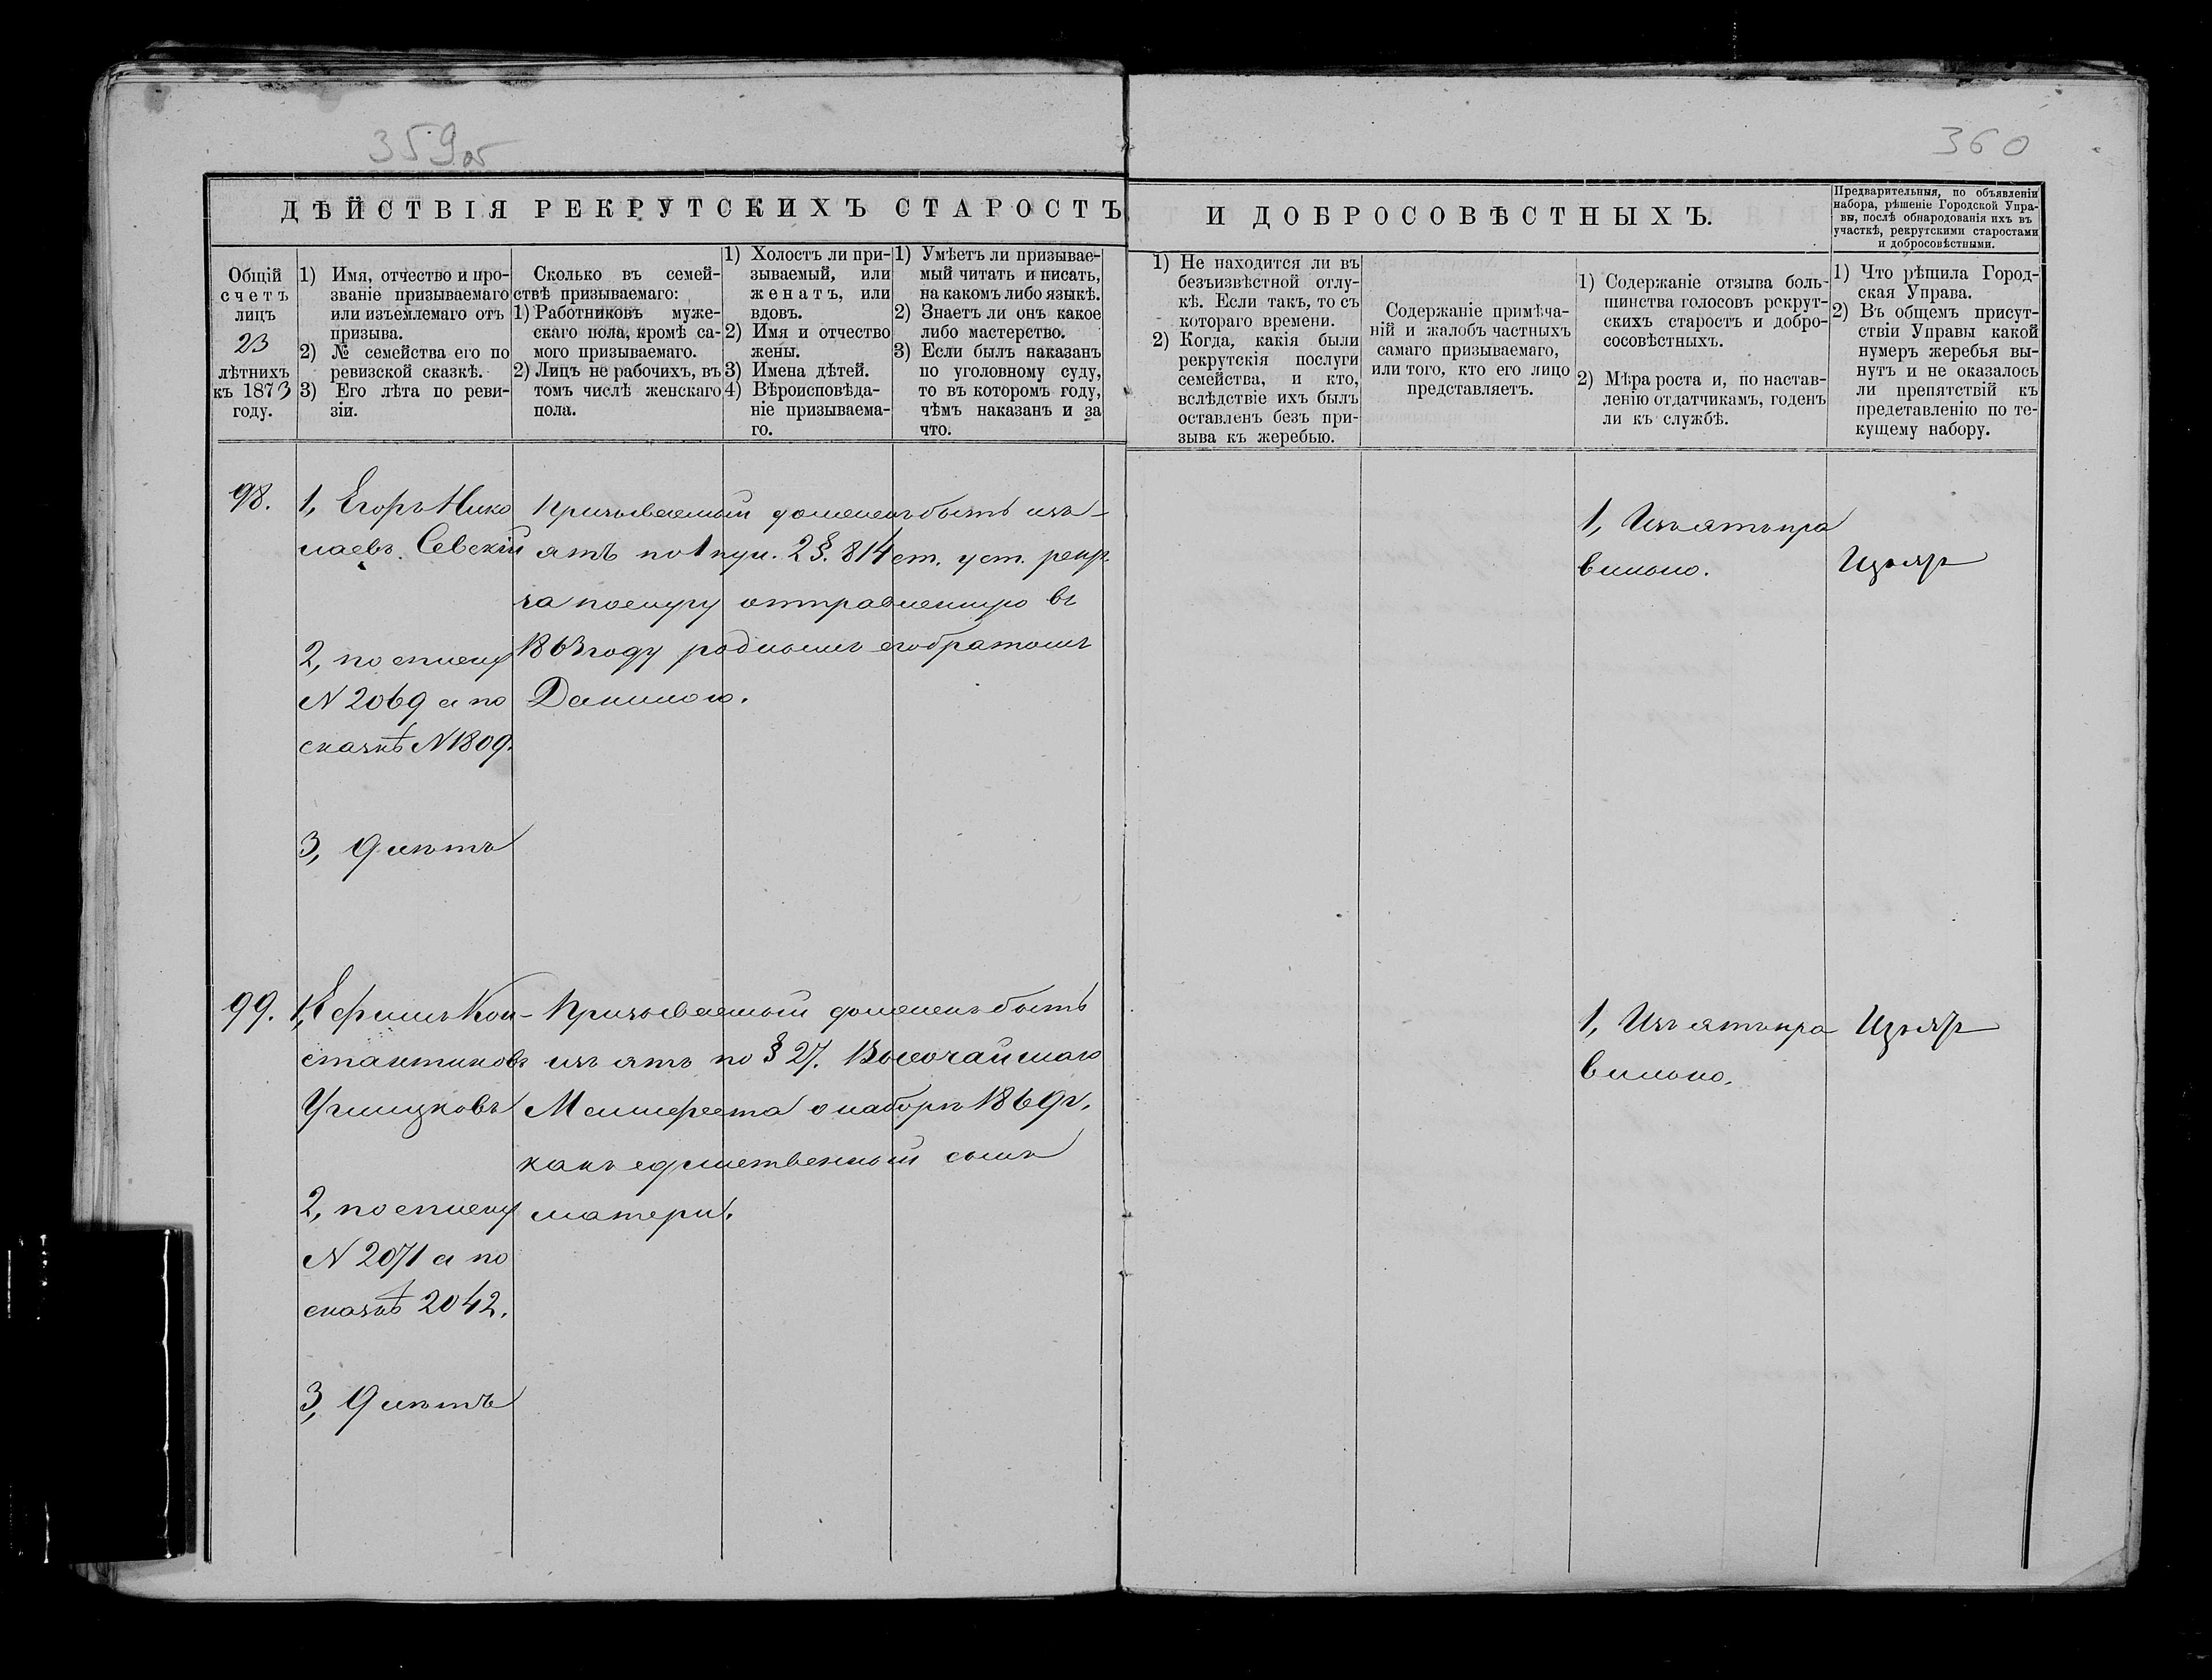 359об
360
ДѢЙСТВІЯ РЕКРУТСКИХЪ СТАРОСТЪ
И ДОБРОСОВѢСТНЫХЪ.
Предварительныя, по объявленіи
набора, рѣшеніе Городской Упра-
вы, послѣ обнародованія ихъ въ
участкѣ, рекрутскими старостами
и добросовѣстными.
Общій
счетъ
лицъ
23
лѣтнихъ
къ 1873
году.
1) Имя, отчество и про-
званіе призываемаго
или изъемлемаго отъ
призыва.
2) № семейства его по
ревизской сказкѣ.
3) Его лѣта по реви-
зіи.
Сколько въ семей-
ствѣ призываемаго:
1) Работниковъ муже-
скаго пола, кромѣ са-
мого призываемаго.
2) Лицъ не рабочихъ, въ
томъ числѣ женскаго
пола.
1) Холостъ ли при-
зываемый, или
женатъ, или
вдовъ.
2) Имя и отчество
жены.
3) Имена дѣтей.
4) Вѣроисповѣда-
ніе призываема-
го.
1) Умѣетъ ли призывае-
мый читать и писать,
на какомъ либо языкѣ.
2) Знаетъ ли онъ какое
либо мастерство.
3) Если былъ наказанъ
по уголовному суду,
то въ которомъ году,
чѣмъ наказанъ и за
что.
1) Не находится ли въ
безъизвѣстной отлу-
кѣ. Если такъ, то съ
котораго времени.
2) Когда, какія были
рекрутскія послуги
семейства, и кто,
вслѣдствіе ихъ былъ
оставленъ безъ при-
зыва къ жеребью.
Содержаніе примѣча-
ній и жалобъ частныхъ
самаго призываемаго,
или того, кто его лицо
представляетъ.
1) Содержаніе отзыва боль-
шинства голосовъ рекрут-
скихъ старостъ и добро-
сосовѣстныхъ.
2) Мѣра роста и, по настав-
ленію отдатчикамъ, годенъ
ли къ службѣ.
1) Что рѣшила Город-
ская Управа.
2) Въ общемъ присут-
ствіи Управы какой
нумеръ жеребья вы-
нутъ и не оказалось
ли препятствій къ
представленію по те-
кущему набору.
98.
1, Егоръ Нико
лаевъ Севскій
2, по списку
N 2069 а по
сказкѣ N 1809.
3, 9 лѣтъ
Призываемый долженъ быть изъ-
ятъ по 1 пун. 2 §. 814 ст. уст. рекр.
за послугу отправленную въ
1863 году роднымъ его братомъ
Даниломъ.
1, Изъятъ пра
вильно.
Изъят
99.
1, Ефимъ Кон-
стантиновъ
Углицковъ
2, по списку
N 2071 а по
сказкѣ 2042.
3, 9 лѣтъ
Призываемый долженъ быть
изъятъ по § 27. Высочайшаго
Манифеста о наборѣ 1869 г.
какъ единственный сынъ
матери.
1, Изъятъ пра
вильно.
Изъят